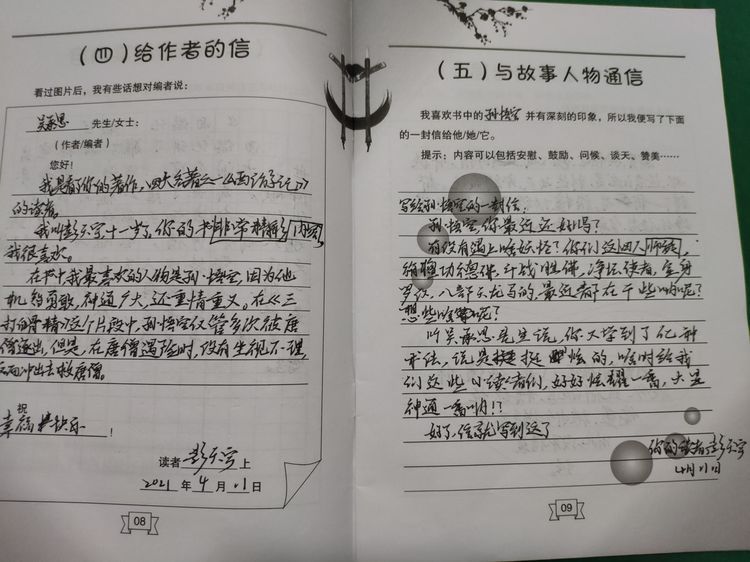 （四）给作者的信
看过图片后，我有些话想对编者说：
吴承恩 先生/女士：
（作者/编者）
您好！
我是看了你的著作，四大名著之一《西游记》
的读者。
我叫彭天宇十一岁，你的书非常精彩内容
我很喜欢。
在书中我最喜欢的人物是孙悟空，因为他
机灵勇敢，神通广大，还重情重义。在《三
打白骨精》这个片段中，孙悟空仅管多次被唐
僧逐出，但是，在唐僧遇险时，没有坐视不理，
反而冲出去救唐僧。
祝
幸福快乐！
读者 彭天宇 上
2021 年 4 月 11 日
08
（五）与故事人物通信
我喜欢书中的 孙悟空 并有深刻的印象，所以我便写了下面
的一封信给他/她/它。
提示：内容可以包括安慰、鼓励、问候、谈天、赞美……
写给孙悟空的一封信：
孙悟空你最近还好吗？
有没有遇上啥妖怪？你们这四人师徒，
旃檀功德佛，斗战胜佛，净坛使者，金身
罗汉，八部天龙马的，最近都在干些啊呢？
想些啥呢？
听吴承恩先生说，你又学到了亿种
术法，说是挺炫的，啥时给我
们这些小读者们，好好炫耀一番，大显
神通一番啊！？
好了，信就写到这了
你的读者彭天宇
4月11日
09